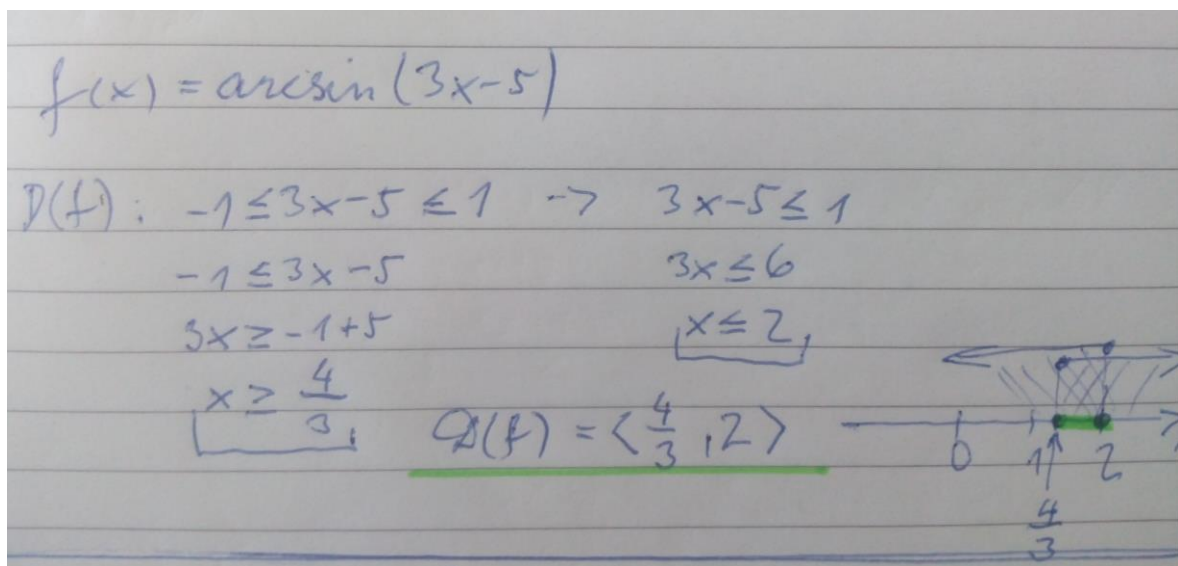 f(x) = arcsin(3x-5)
D(f): -1≤3x-5≤1 -> 3x-5≤1
-1≤3x-5 3x≤6
3x≥-1+5 x≤2
x≥4/3 D(f) = <4/3, 2>
0 1 2
4/3